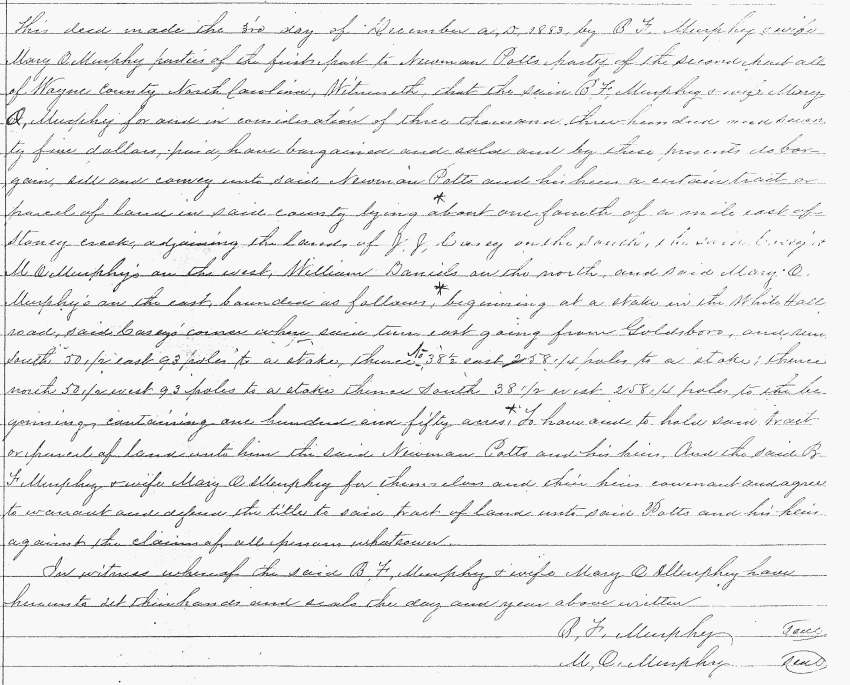 This deed made the 3rd day of December A, D, 1883, by B F, Murphy & wife
Mary O Murphy parties of the first part to Newman Potts, party of the second part all
of Wayne County North Carolina, Witnesseth, that the said B F, Murphy & wife Mary
O, Murphy for and in consideration of three thousand three hundred and seven
ty five dollars, paid, have bargained and sold and by these presents do bar-
gain, sell and convey unto said Newman Potts and his heirs a certain tract or
parcel of land in said county lying * about one fourth of a mile east of
Stoney creek, adjoining the lands of J, J, Casey on the south, the said
M O Murphy's on the west, William Daniels on the north, and said Mary O.
Murphy's on the east, bounded as follows; * beginning at a stake in the White Hall
road, said Casey's corner when said turn east going from Goldsboro, and run
South 50 1/2 east 93 poles to a stake, thence No 38 1/2 east 258 1/4 poles to a stake; thence
north 50 1/2 west 93 poles to a stake thence South 38 1/2 west 258 1/4 poles to the be
ginning, containing one hundred and fifty acres; * To have and to hold said tract
or parcel of land unto him the said Newman Potts and his heirs. And the said B
F Murphy & wife Mary O Murphy for themselves and their heirs covenant and agree
to warrant and defend the title to said tract of land unto said Potts and his heirs
against the claim of all persons whatsoever.
In witness whereof the said B. F, Murphy & wife Mary O Murphy have
hereunto set their hands and seals the day and year above written
B, F, Murphy Seal
M, O, Murphy Seal